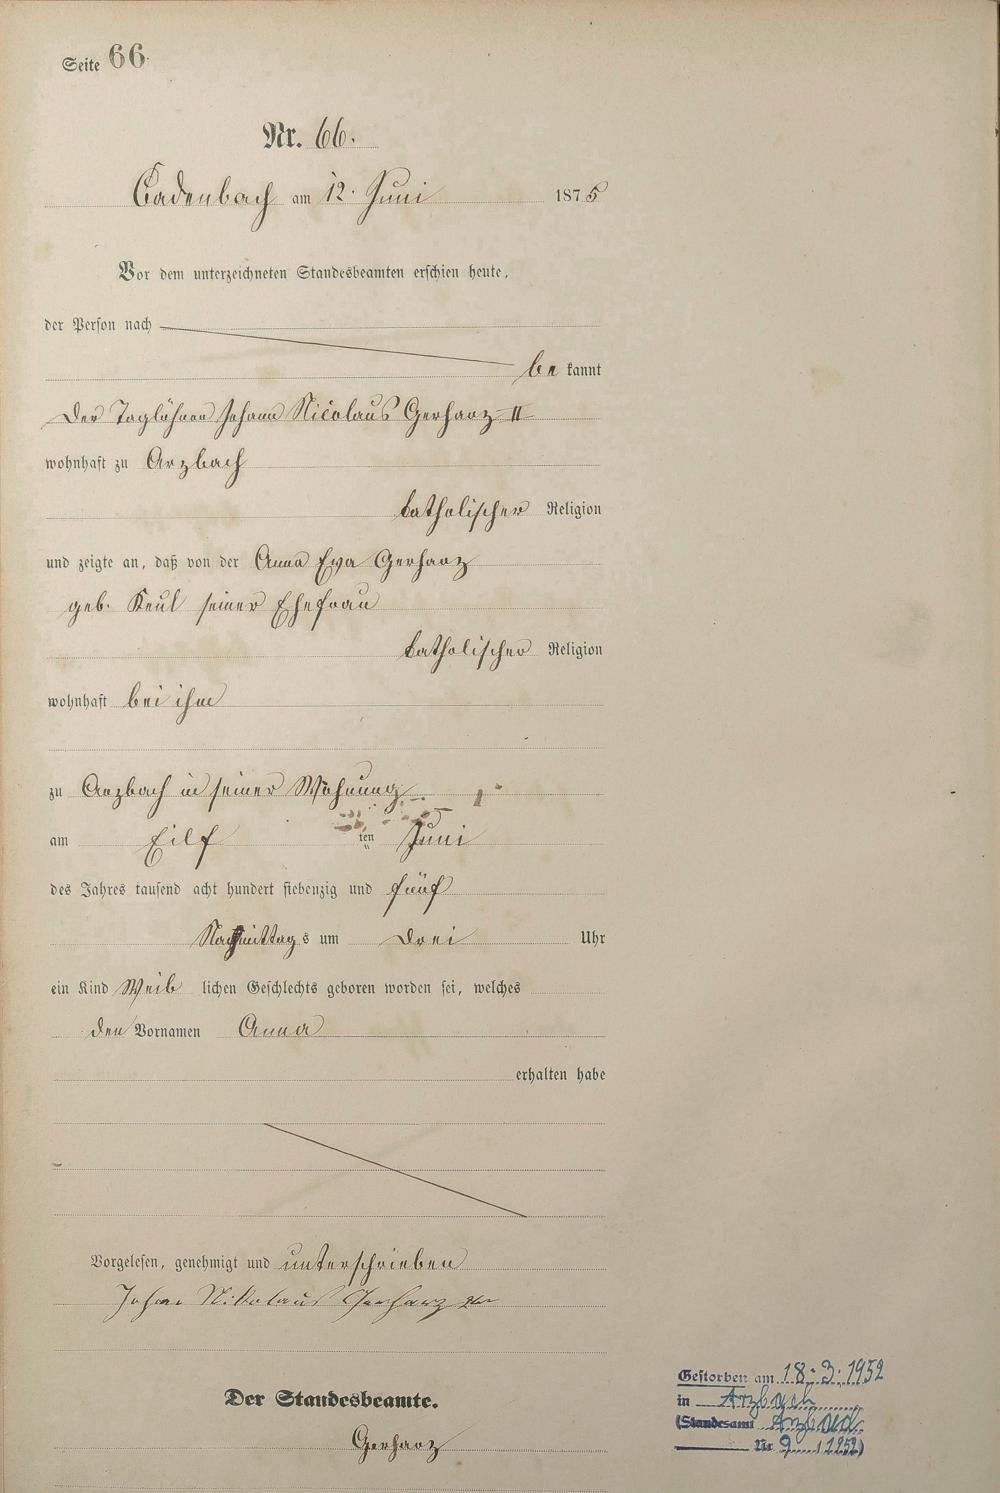 Seite 66.
Nr. 66.
Cadenbach am 12. Juni 1875
Vor dem unterzeichneten Standesbeamten erschien heute,
der Person nach
be kannt
Der Taglöhner Johann Nicolaus Gerharz II
wohnhaft zu Arzbach
katholischer Religion
und zeigte an, daß von der Anna Eva Gerharz
geb. Keul seiner Ehefrau
katholischer Religion
wohnhaft bei ihm
zu Arzbach in seiner Wohnung
am Eilf ten Juni
des Jahres tausend acht hundert siebenzig und fünf
Nachmittag s um drei Uhr
ein Kind Weib lichen Geschlechts geboren worden sei, welches
den Vornamen Anna
erhalten habe
Vorgelesen, genehmigt und unterschrieben
Johan Nikolaus Gerharz 2ter
Der Standesbeamte.
Gerharz
Gestorben am 18.3.1952
in Arzbach
(Standesamt Arzbach
Nr 9 / 1952)